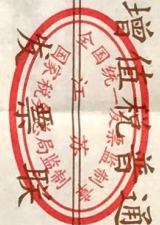 增值税普通
发票联
全国统一发票监制章
江苏
国家税 局监制